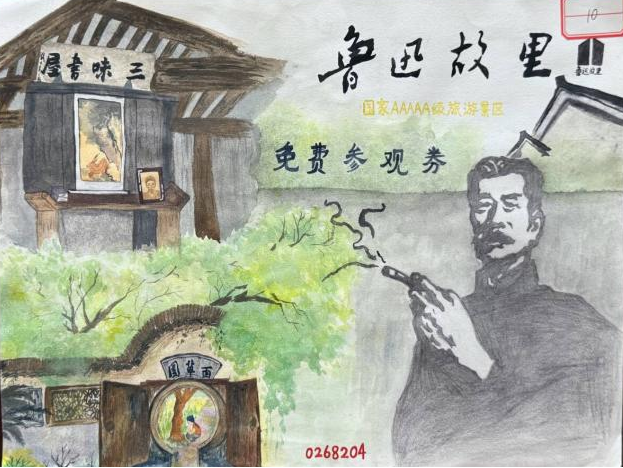 10
鲁迅故里
鲁迅故里
国家AAAAA级旅游景区
免费参观券
三味書屋
百草園
0268204